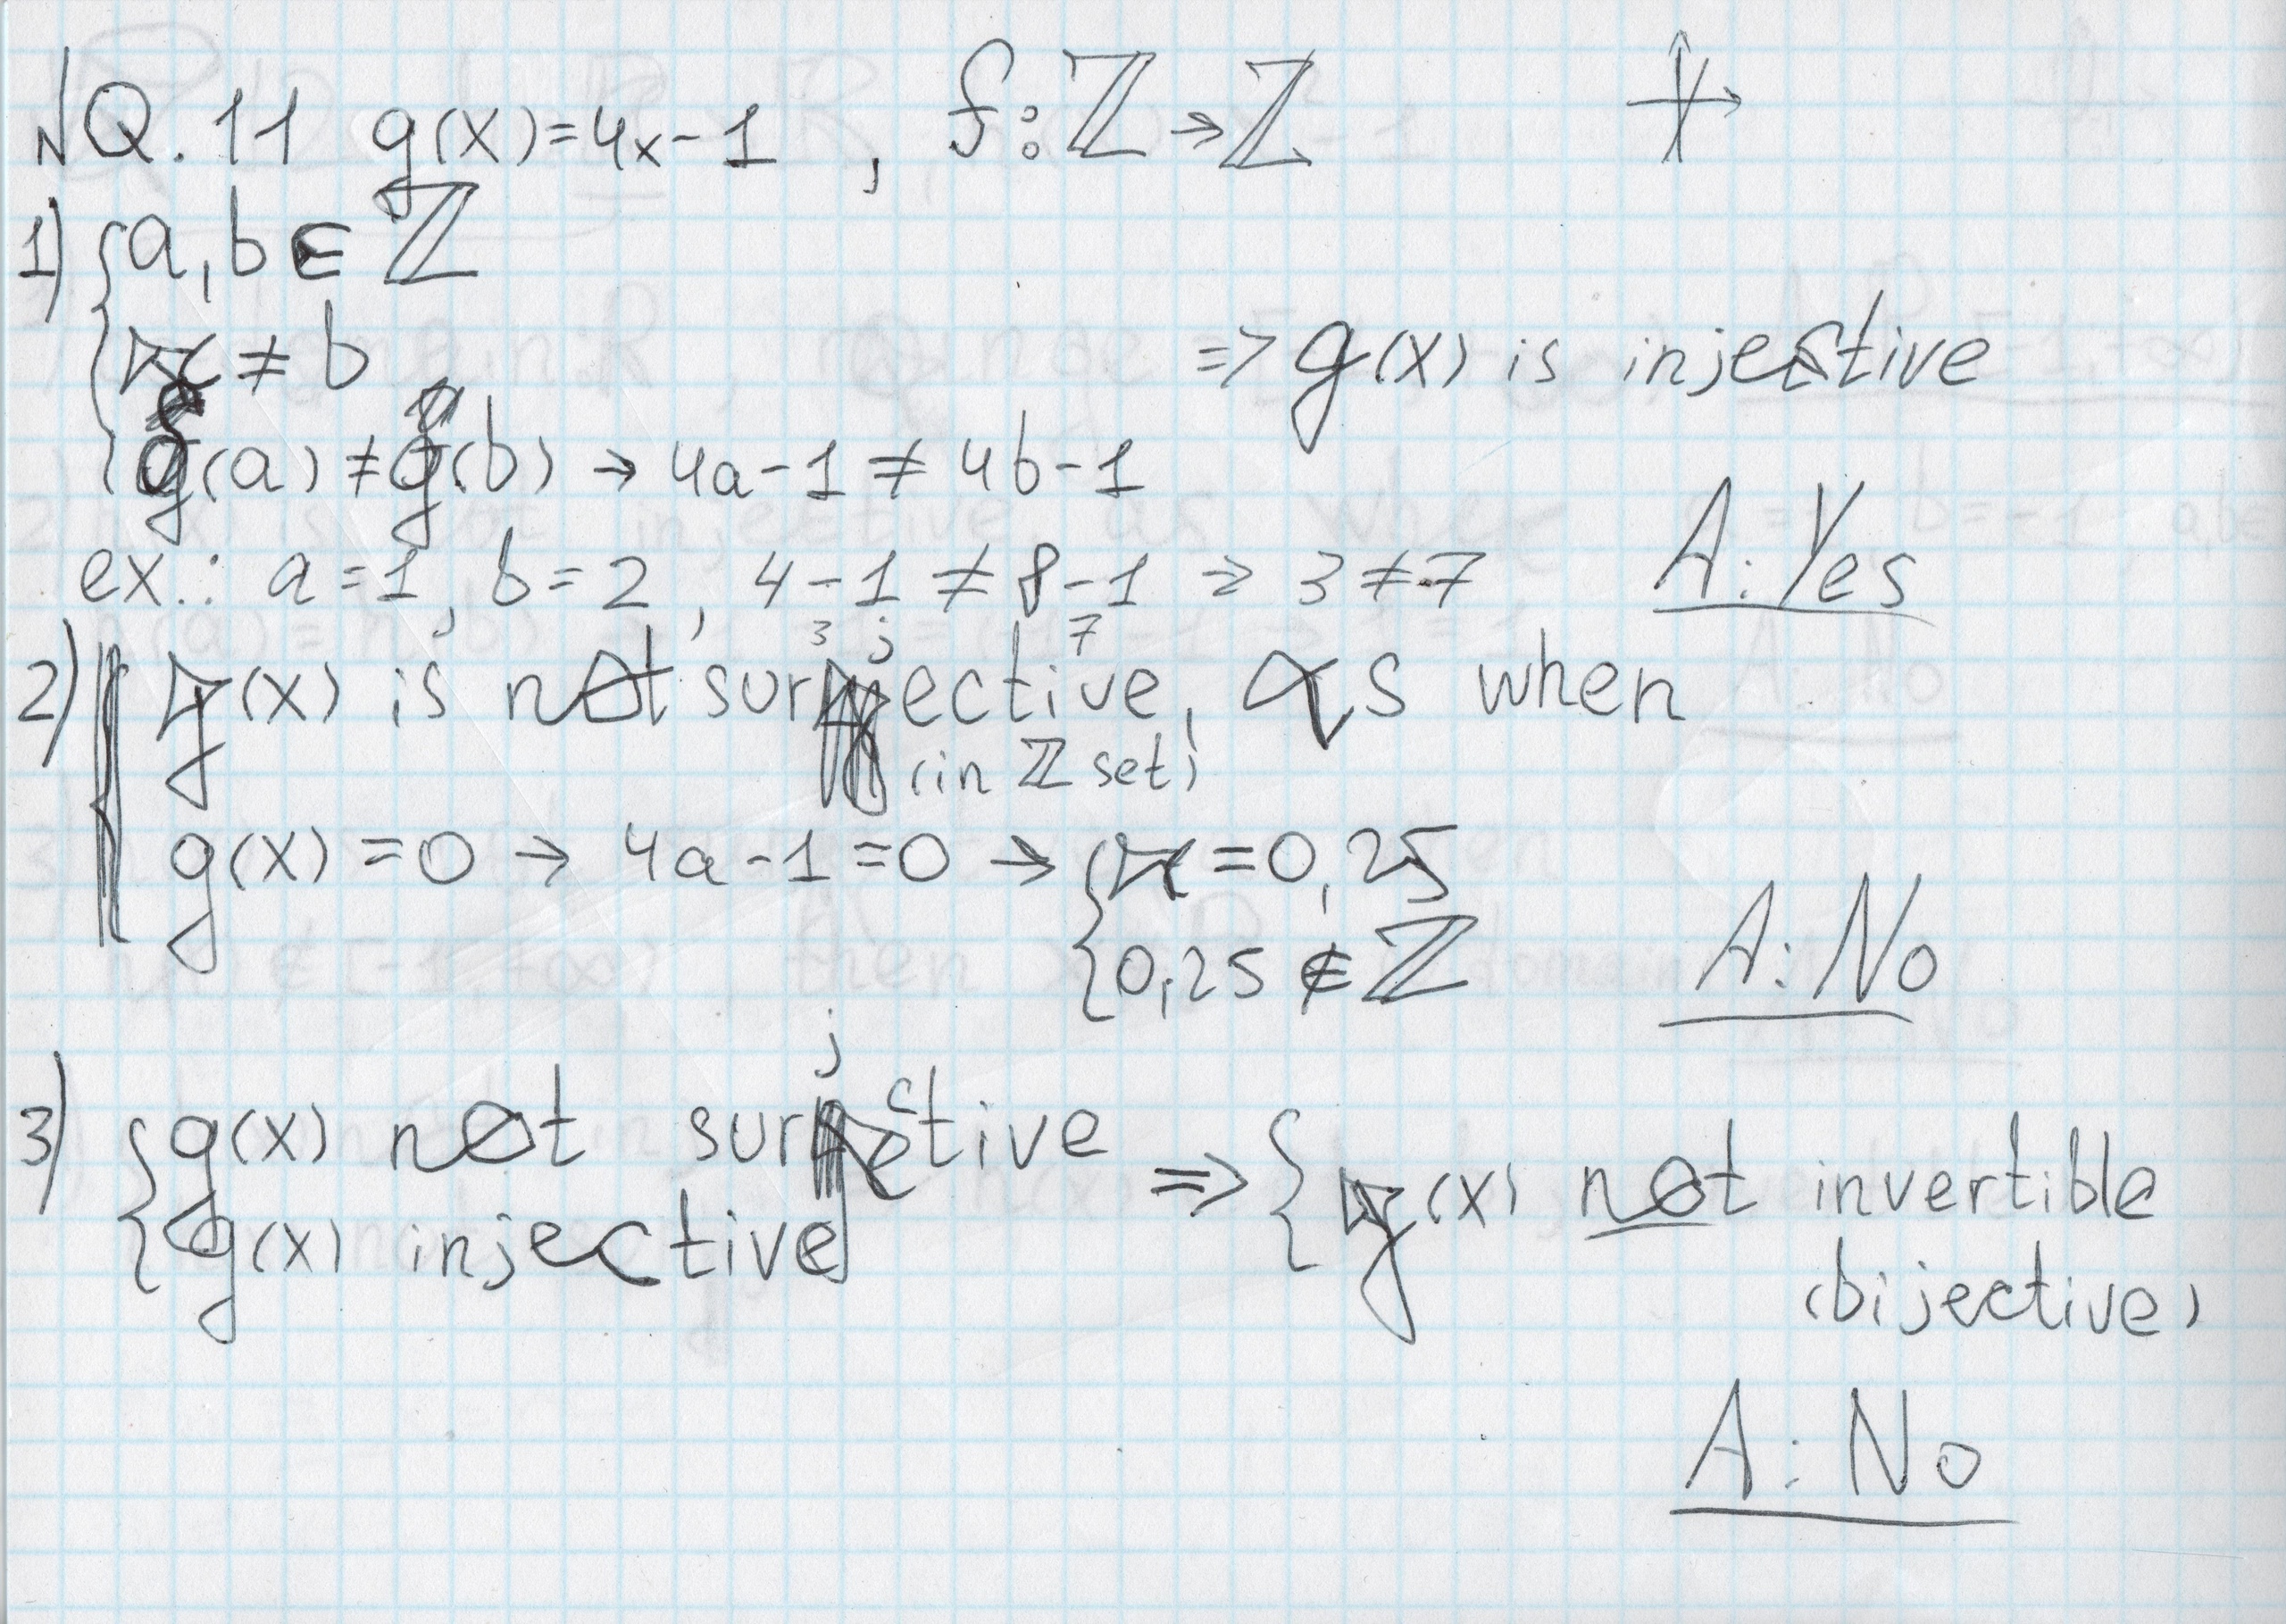 NQ.11 g(x)=4x-1, f:ℤ→ℤ
1) {a,b∈ℤ
a≠b
g(a)≠g(b) → 4a-1≠4b-1
=> g(x) is injective
ex.: a=1, b=2, 4-1≠8-1 => 3≠7
3 7
A: Yes
2) g(x) is not surjective, as when
(in ℤ set)
g(x)=0 → 4a-1=0 → {a=0,25
0,25∉ℤ
A: No
3) {g(x) not surjective
g(x) injective
=> {g(x) not invertible
(bijective)
A: No